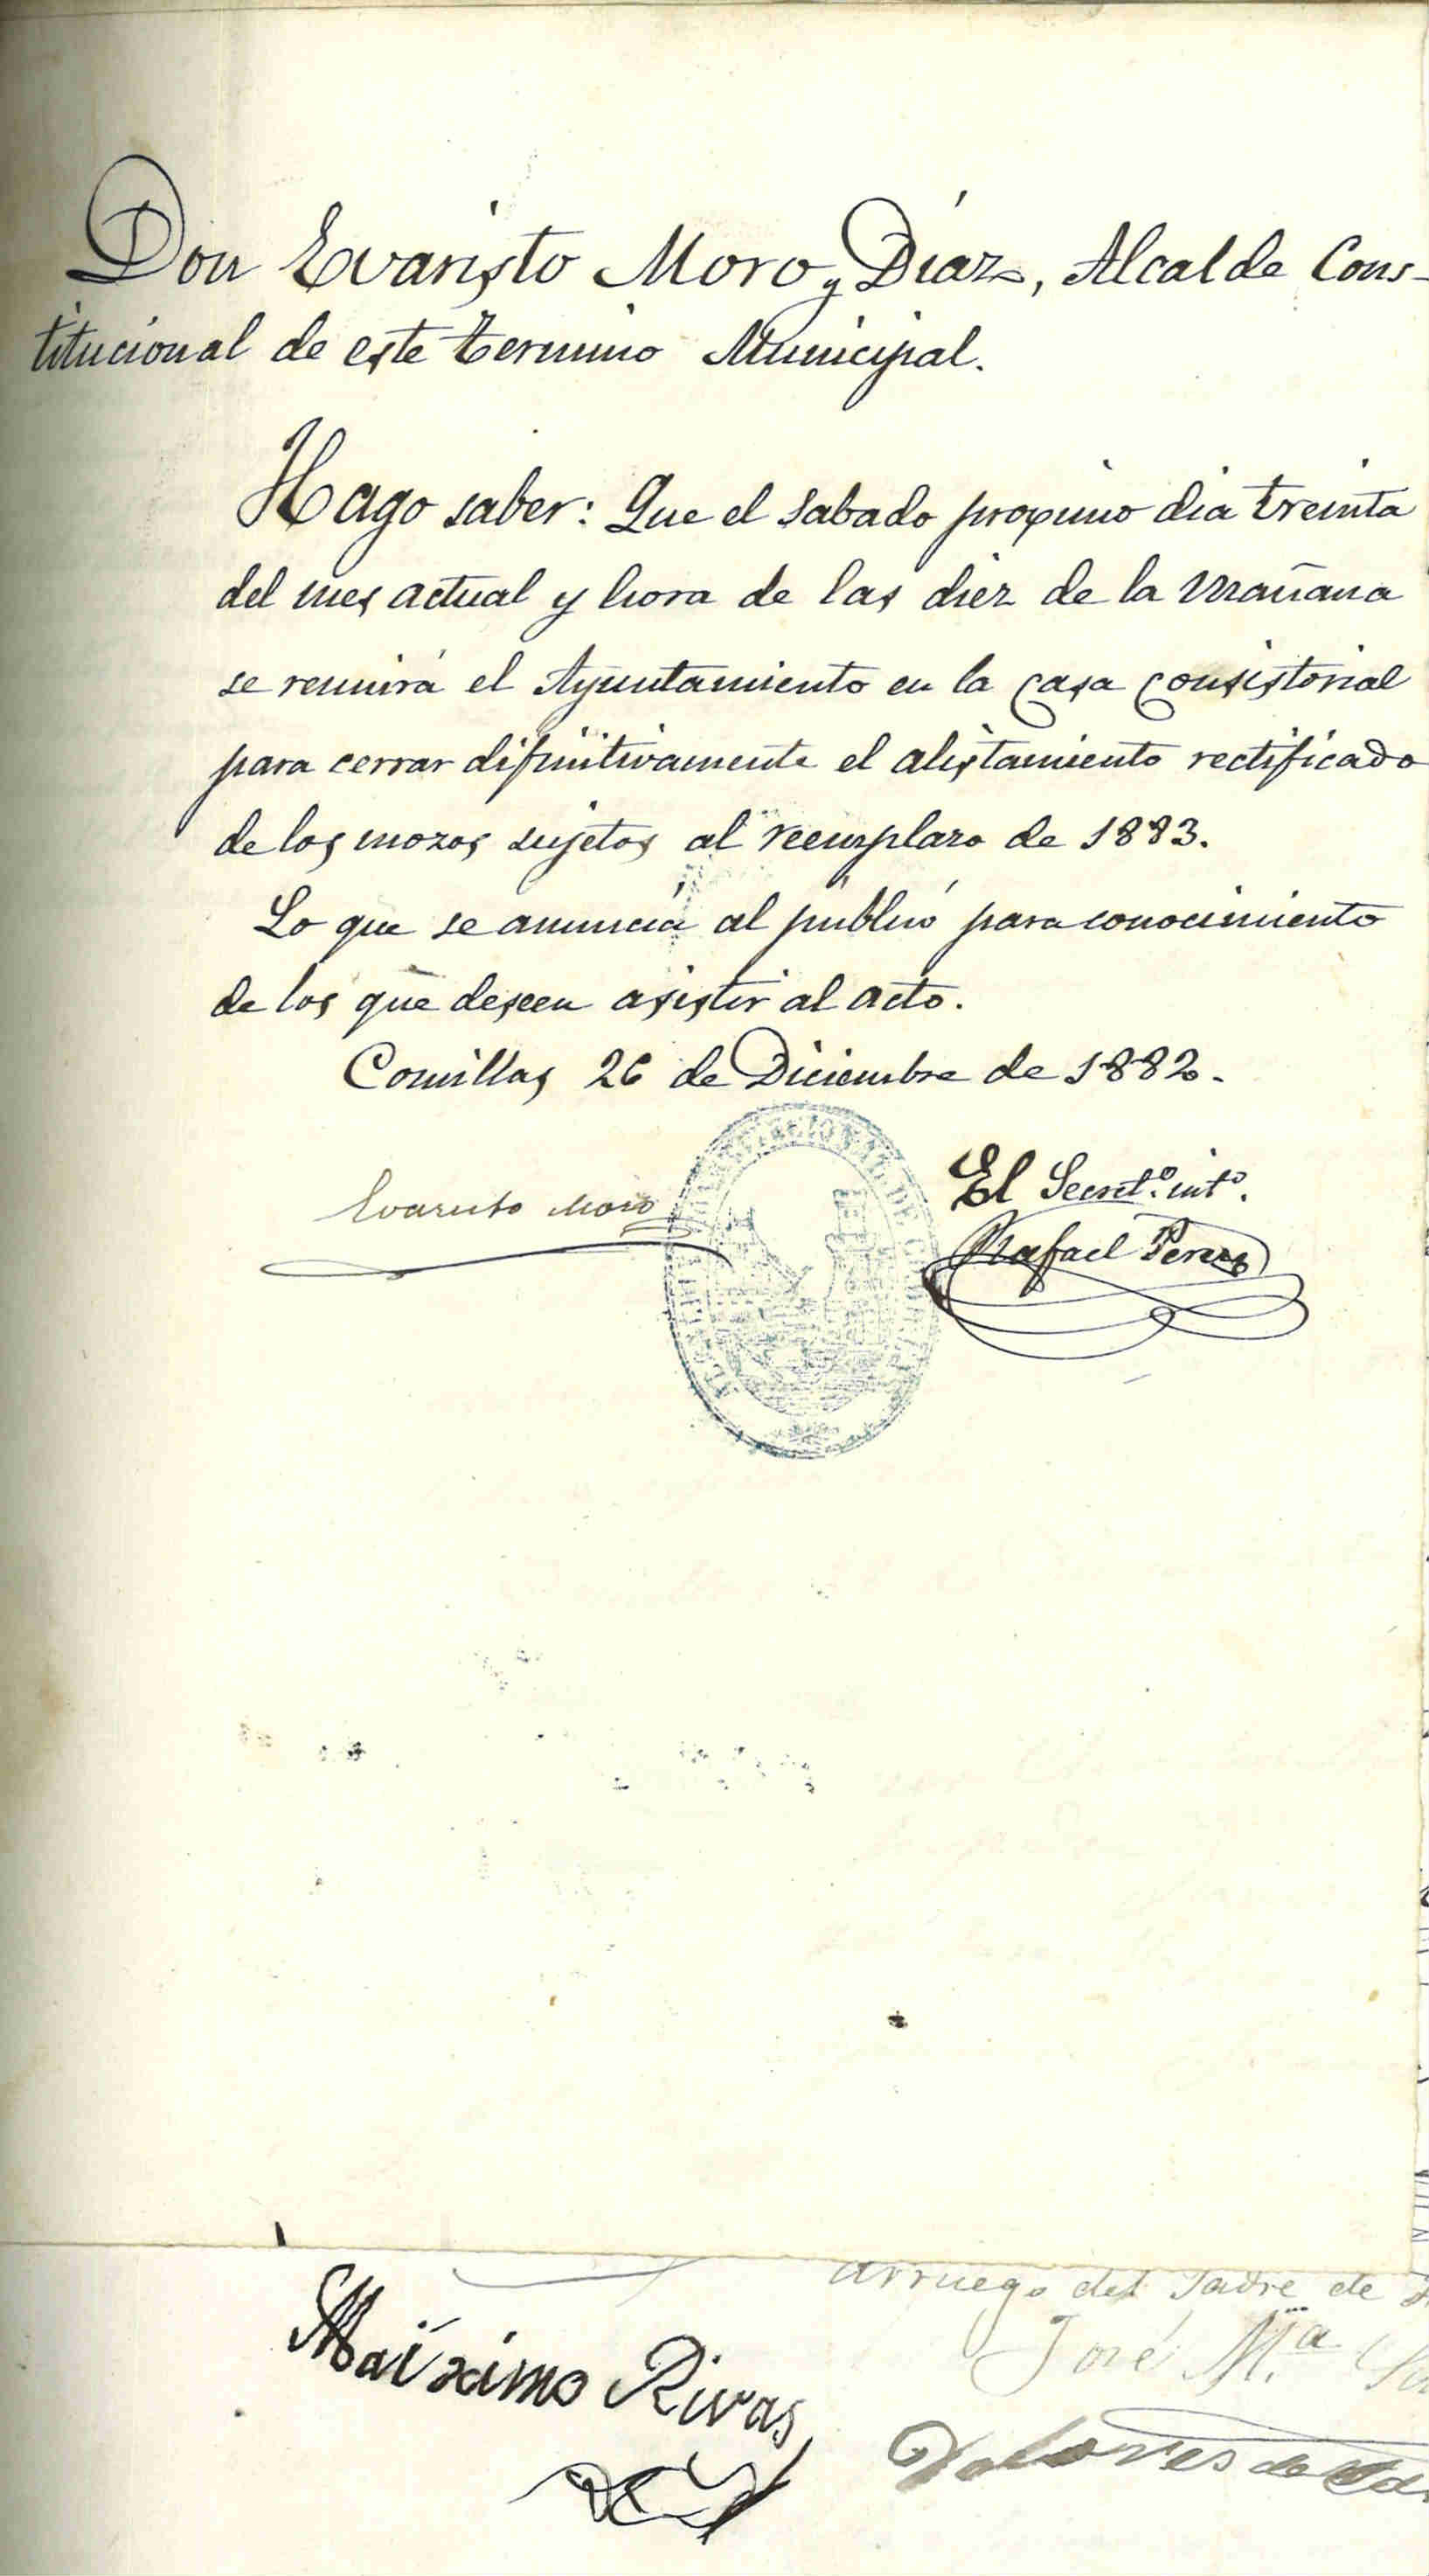 Don Evaristo Moro y Díaz, Alcalde Cons-
titucional de este termino Municipal.
Hago saber: Que el Sabado proximo dia treinta
del mes actual y hora de las diez de la mañana
se reunirá el Ayuntamiento en la casa consistorial
para cerrar difinitivamente el alistamiento rectificado
de los mozos sujetos al reemplazo de 1883.
Lo que se anuncia al público para conocimiento
de los que deseen asistir al acto.
Comillas 26 de Diciembre de 1882.
Evaristo Moro
El Secret.º int.º
Rafael Perez
arruego del Padre de
José M.ª
Máximo Rivas
Dolores de